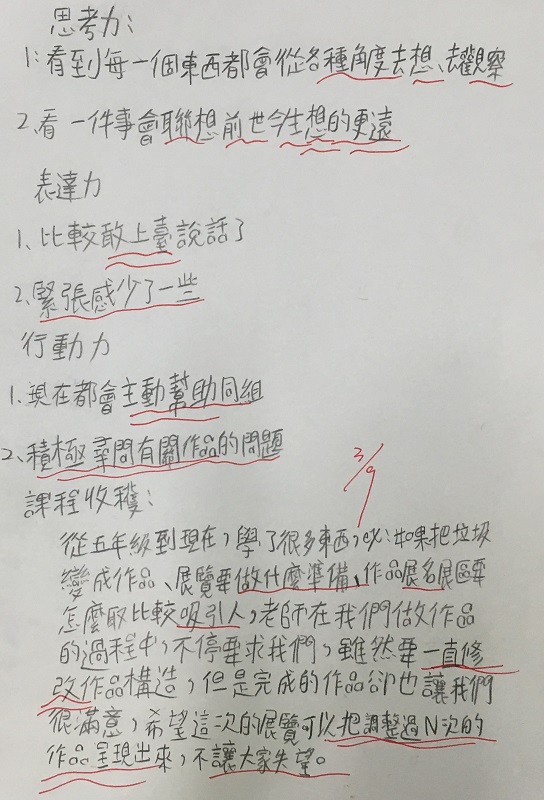 思考力：
1：看到每一個東西都會從各種角度去想、去觀察
2、看一件事會聯想前世今生想的更遠
表達力
1、比較敢上臺說話了
2、緊張感少了一些
行動力
1、現在都會主動幫助同組
2、積極尋問有關作品的問題
3/9
課程收穫：
從五年級到現在，學了很多東西，ex：如果把垃圾
變成作品、展覽要做什麼準備、作品展名展區要
怎麼取比較吸引人，老師在我們做作品
的過程中，不停要求我們，雖然要一直修
改作品構造，但是完成的作品卻也讓我們
很滿意，希望這次的展覽可以把調整過N次的
作品呈現出來，不讓大家失望。